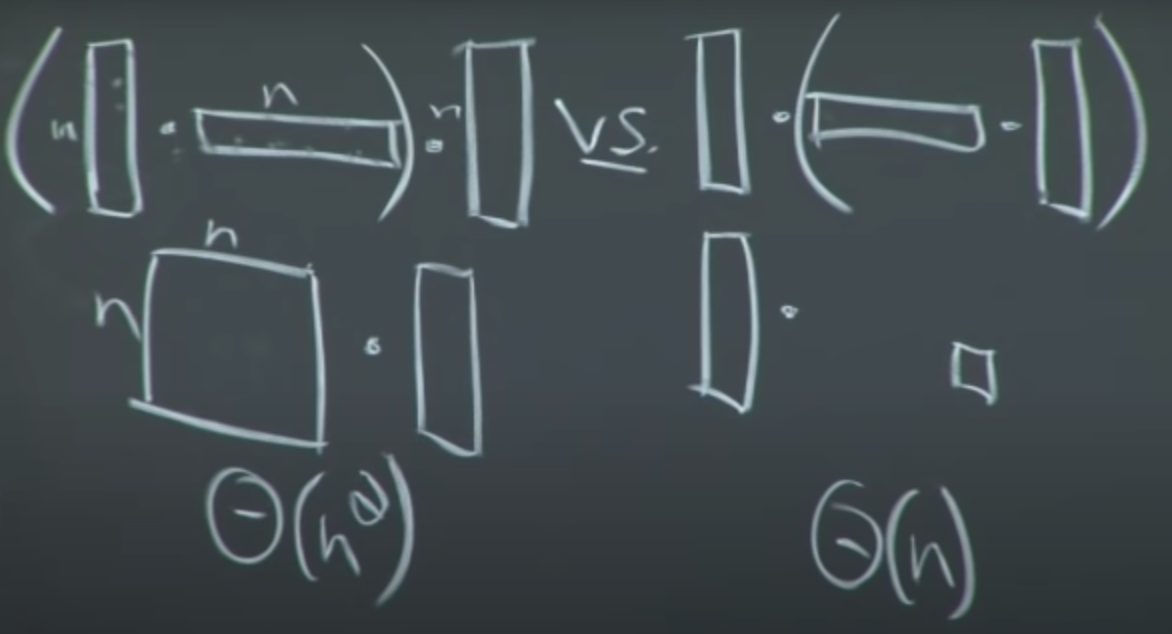 n
( n · ) · n VS. · ( · )
n
n · ·
Θ(n²) Θ(n)